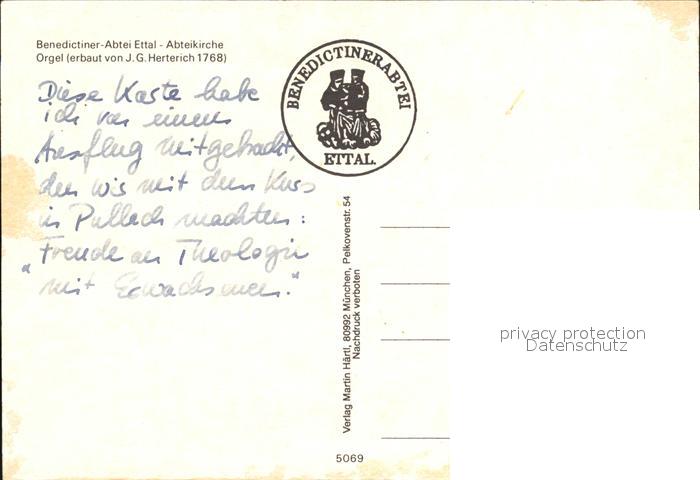 Benedictiner-Abtei Ettal - Abteikirche
Orgel (erbaut von J.G.Herterich 1768)
Diese Karte habe
ich von einem
Ausflug mitgebracht,
den wir mit dem Kurs
in Pullach machten:
"Freude an Theologie
mit Erwachsenen."
BENEDICTINERABTEI
ETTAL.
Verlag Martin Härtl, 80992 München, Pelkovenstr. 54
Nachdruck verboten
5069
privacy protection
Datenschutz